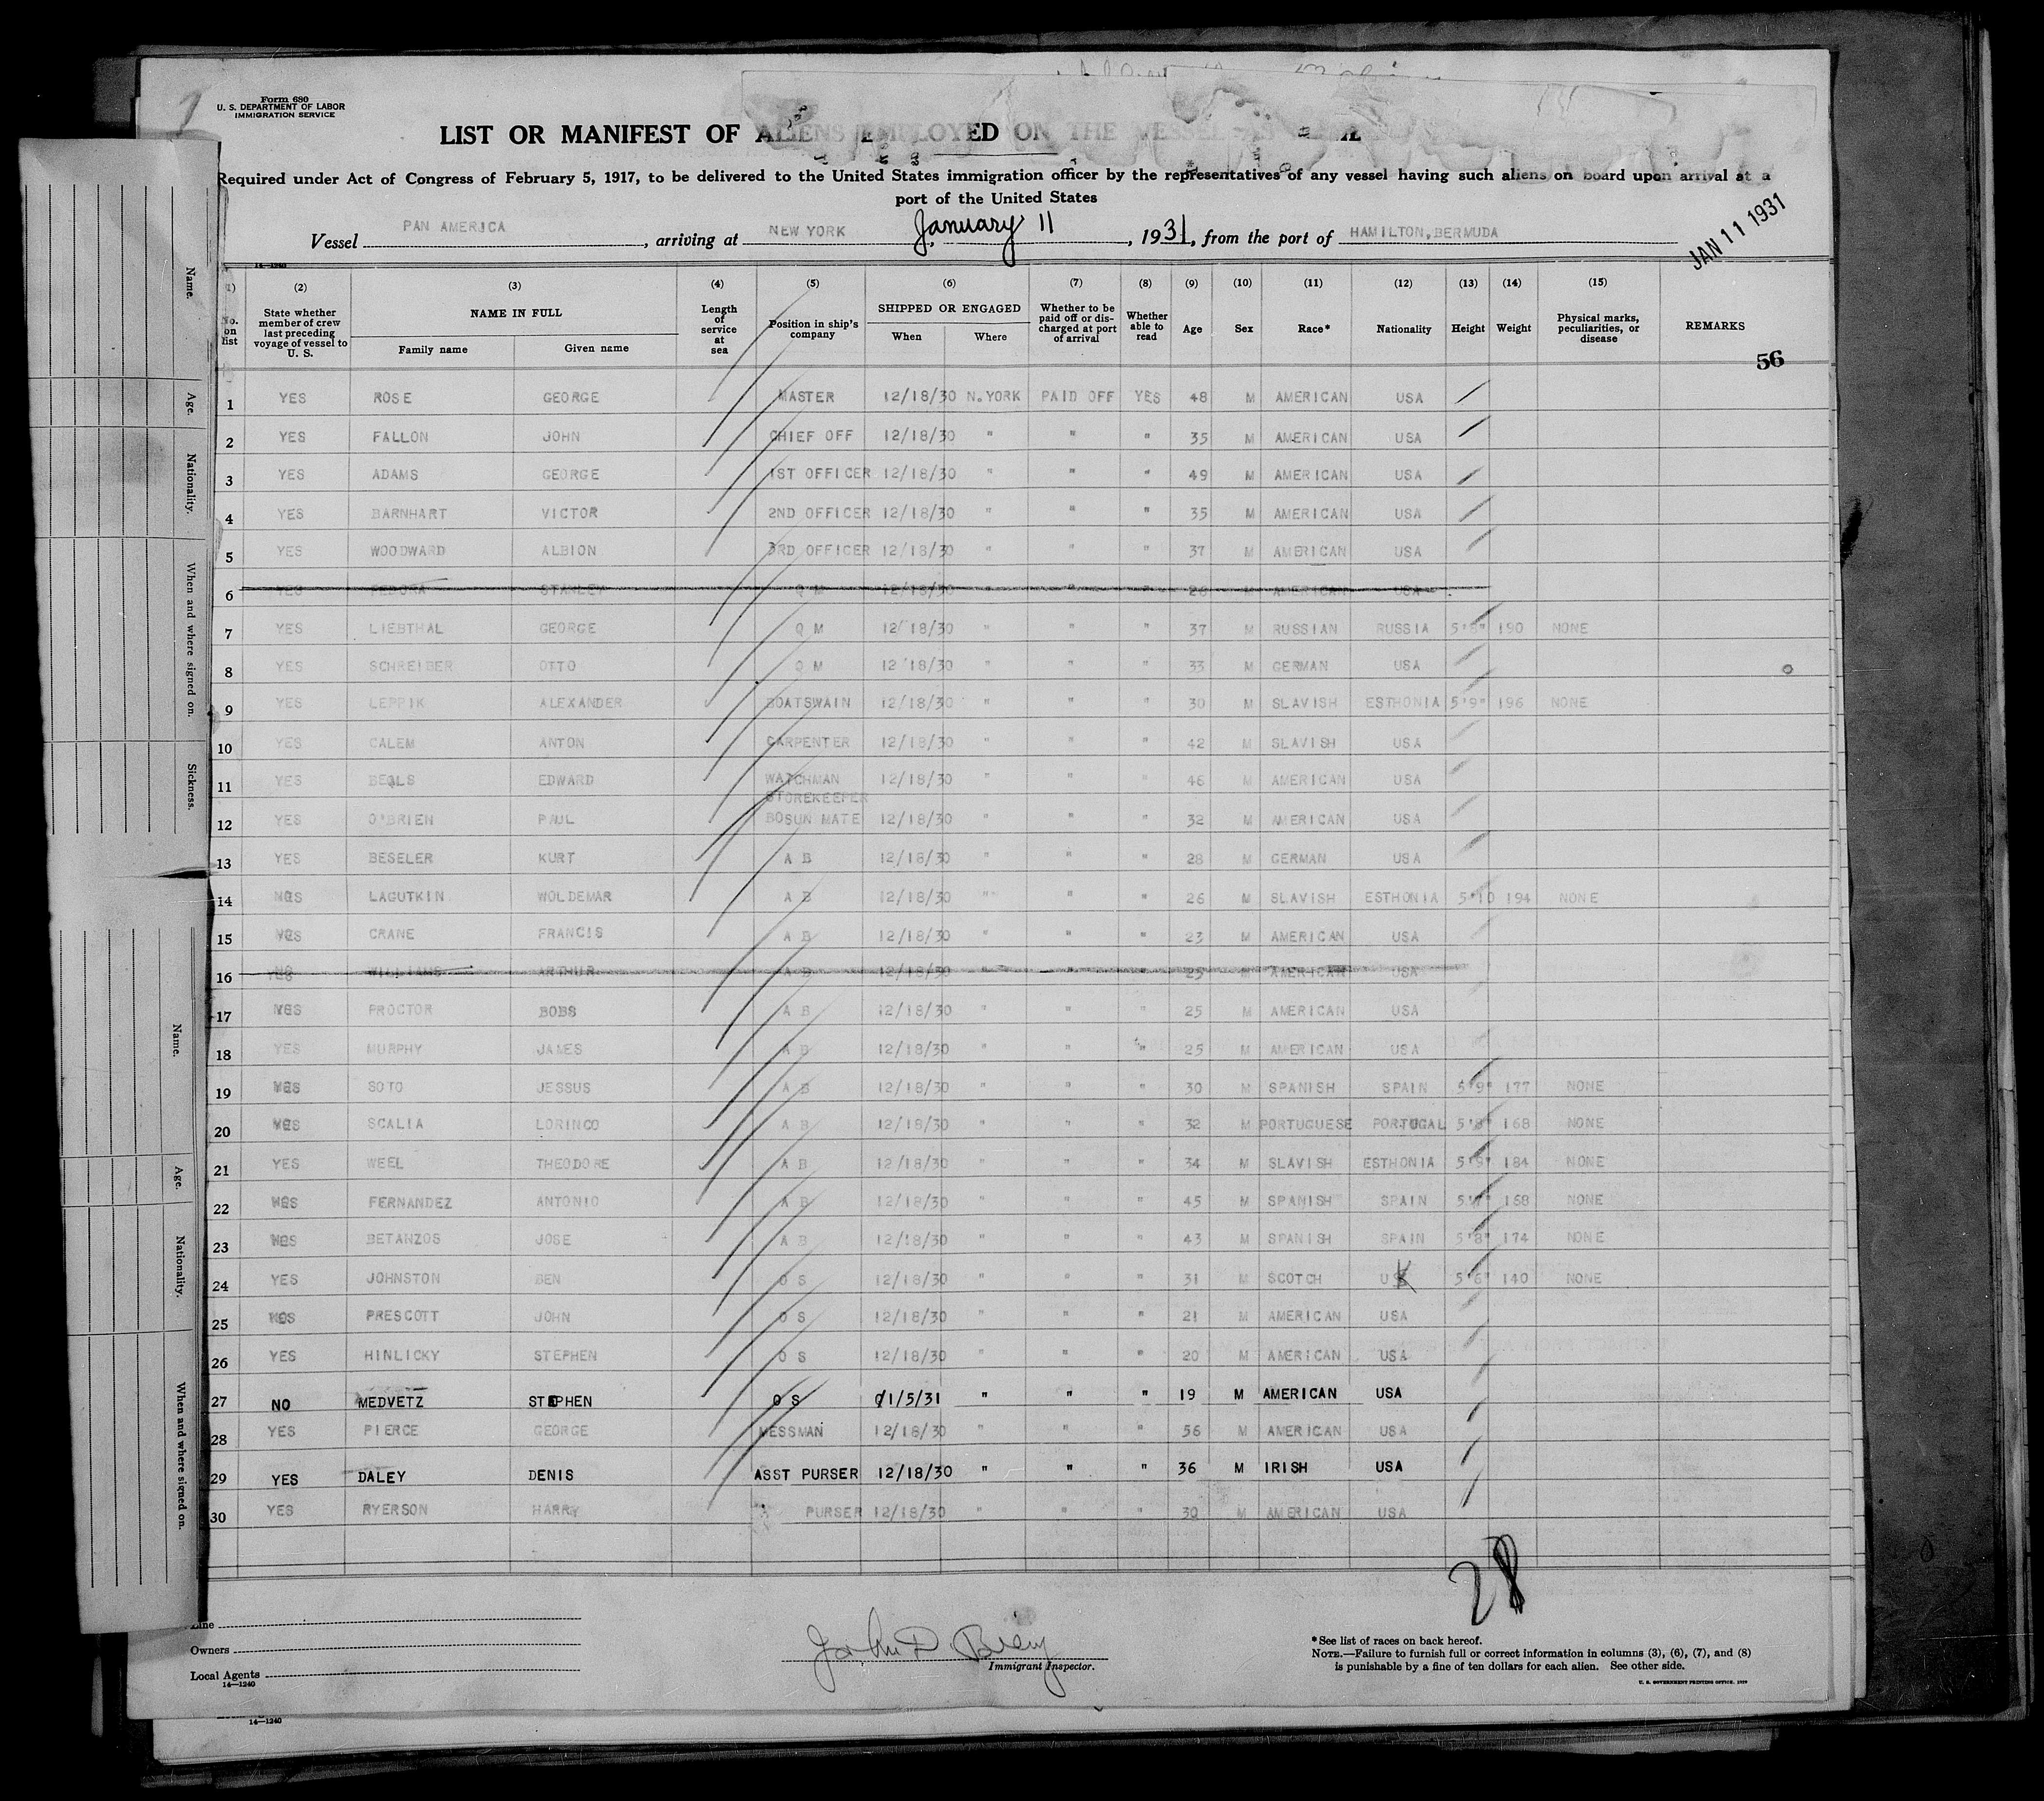 Form 680
U. S. DEPARTMENT OF LABOR
IMMIGRATION SERVICE
LIST OR MANIFEST OF ALIENS EMPLOYED ON THE VESSEL AS
Required under Act of Congress of February 5, 1917, to be delivered to the United States immigration officer by the representatives of any vessel having such aliens on board upon arrival at a
port of the United States
Vessel PAN AMERICA, arriving at NEW YORK January 11, 1931, from the port of HAMILTON, BERMUDA
JAN 11 1931
14—1240
(1) (2) (3) (4) (5) (6) (7) (8) (9) (10) (11) (12) (13) (14) (15)
No. on list State whether member of crew last preceding voyage of vessel to U. S. NAME IN FULL Family name Given name Length of service at sea Position in ship's company SHIPPED OR ENGAGED When Where Whether to be paid off or discharged at port of arrival Whether able to read Age Sex Race* Nationality Height Weight Physical marks, peculiarities, or disease REMARKS
56
1 YES ROSE GEORGE MASTER 12/18/30 N.YORK PAID OFF YES 48 M AMERICAN USA
2 YES FALLON JOHN CHIEF OFF 12/18/30 " " " 35 M AMERICAN USA
3 YES ADAMS GEORGE 1ST OFFICER 12/18/30 " " " 49 M AMERICAN USA
4 YES BARNHART VICTOR 2ND OFFICER 12/18/30 " " " 35 M AMERICAN USA
5 YES WOODWARD ALBION 3RD OFFICER 12/18/30 " " " 37 M AMERICAN USA
6 YES FEDORA STANLEY Q M 12/18/30 " " " 26 M AMERICAN USA
7 YES LIEBTHAL GEORGE Q M 12/18/30 " " " 37 M RUSSIAN RUSSIA 5'8" 190 NONE
8 YES SCHREIBER OTTO Q M 12/18/30 " " " 33 M GERMAN USA
9 YES LEPPIK ALEXANDER BOATSWAIN 12/18/30 " " " 30 M SLAVISH ESTHONIA 5'9" 196 NONE
10 YES CALEM ANTON CARPENTER 12/18/30 " " " 42 M SLAVISH USA
11 YES BEALS EDWARD WATCHMAN 12/18/30 " " " 46 M AMERICAN USA
STOREKEEPER
12 YES O'BRIEN PAUL BOSUN MATE 12/18/30 " " " 32 M AMERICAN USA
13 YES BESELER KURT A B 12/18/30 " " " 28 M GERMAN USA
14 YES LAGUTKIN WOLDEMAR A B 12/18/30 " " " 26 M SLAVISH ESTHONIA 5'10 194 NONE
15 YES CRANE FRANCIS A B 12/18/30 " " " 23 M AMERICAN USA
16 YES WILLIAMS ARTHUR A B 12/18/30 " " " 25 M AMERICAN USA
17 YES PROCTOR BOBS A B 12/18/30 " " " 25 M AMERICAN USA
18 YES MURPHY JAMES A B 12/18/30 " " " 25 M AMERICAN USA
19 YES SOTO JESSUS A B 12/18/30 " " " 30 M SPANISH SPAIN 5'9" 177 NONE
20 YES SCALIA LORINCO A B 12/18/30 " " " 32 M PORTUGUESE PORTUGAL 5'8" 168 NONE
21 YES WEEL THEODORE A B 12/18/30 " " " 34 M SLAVISH ESTHONIA 5'9" 184 NONE
22 YES FERNANDEZ ANTONIO A B 12/18/30 " " " 45 M SPANISH SPAIN 168 NONE
23 YES BETANZOS JOSE A B 12/18/30 " " " 43 M SPANISH SPAIN 5'8" 174 NONE
24 YES JOHNSTON BEN O S 12/18/30 " " " 31 M SCOTCH UK 5'6" 140 NONE
25 YES PRESCOTT JOHN O S 12/18/30 " " " 21 M AMERICAN USA
26 YES HINLICKY STEPHEN O S 12/18/30 " " " 20 M AMERICAN USA
27 NO MEDVETZ STEPHEN O S 1/5/31 " " " 19 M AMERICAN USA
28 YES PIERCE GEORGE MESSMAN 12/18/30 " " " 56 M AMERICAN USA
29 YES DALEY DENIS ASST PURSER 12/18/30 " " " 36 M IRISH USA
30 YES RYERSON HARRY PURSER 12/18/30 " " " 30 M AMERICAN USA
28
Line
Owners
Local Agents
14—1240
John D.
Immigrant Inspector.
*See list of races on back hereof.
NOTE.—Failure to furnish full or correct information in columns (3), (6), (7), and (8)
is punishable by a fine of ten dollars for each alien. See other side.
U. S. GOVERNMENT PRINTING OFFICE: 1929
14—1240
Name.
Age.
Nationality.
When and where signed on.
Sickness.
Name.
Age.
Nationality.
When and where signed on.